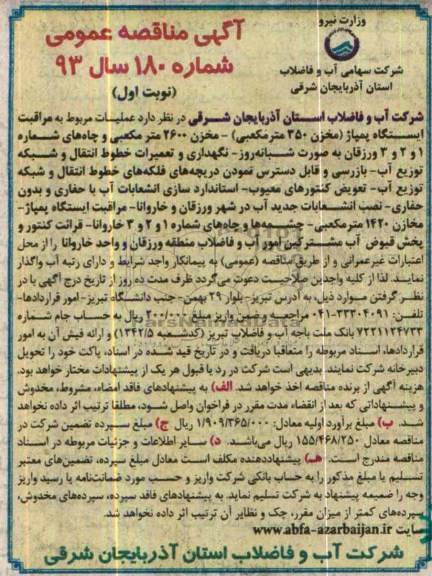 وزارت نیرو
شرکت سهامی آب و فاضلاب
استان آذربایجان شرقی
آگهی مناقصه عمومی
شماره ۱۸۰ سال ۹۳
(نوبت اول)
شرکت آب و فاضلاب استان آذربایجان شرقی در نظر دارد عملیات مربوط به مراقبت
ایستگاه پمپاژ (مخزن ۳۵۰ مترمکعبی) - مخزن ۲۶۰۰ متر مکعبی و چاه‌های شماره
۱ و ۲ و ۳ ورزقان به صورت شبانه‌روز- نگهداری و تعمیرات خطوط انتقال و شبکه
توزیع آب- بازرسی و قابل دسترس نمودن دریچه‌های فلکه‌های خطوط انتقال و شبکه
توزیع آب- تعویض کنتورهای معیوب- استاندارد سازی انشعابات آب با حفاری و بدون
حفاری- نصب انشعابات جدید آب در شهر ورزقان و خاروانا- مراقبت ایستگاه پمپاژ-
مخازن ۱۴۲۰ مترمکعبی- چشمه‌ها و چاه‌های شماره ۱ و ۲ و ۳ خاروانا- قرائت کنتور و
پخش قبوض آب مشترکین امور آب و فاضلاب منطقه ورزقان و واحد خاروانا را از محل
اعتبارات غیرعمرانی و از طریق مناقصه (عمومی) به پیمانکار واجد شرایط و دارای رتبه آب واگذار
نمایند. لذا از کلیه واجدین صلاحیت دعوت می‌گردد ظرف مدت ده روز از تاریخ درج آگهی با در
نظر گرفتن موارد ذیل، به آدرس تبریز- بلوار ۲۹ بهمن- جنب دانشگاه تبریز- امور قراردادها-
تلفن: ۳۳۳۰۴۰۹۱-۰۴۱ مراجعه و ضمن واریز مبلغ ۲۰۰/۰۰۰ ریال به حساب جام شماره
۷۲۲۱۱۲۴۷۳۳ بانک ملت باجه آب و فاضلاب تبریز (کدشعبه ۱۳۴۲/۵) و ارائه فیش آن به امور
قراردادها، اسناد مربوطه را متعاقبا دریافت و در تاریخ قید شده در اسناد، پاکت خود را تحویل
دبیرخانه شرکت نمایند. بدیهی است شرکت در رد یا قبول هر یک از پیشنهادات مختار خواهد بود.
هزینه آگهی از برنده مناقصه اخذ خواهد شد. الف) به پیشنهادهای فاقد امضاء، مشروط، مخدوش
و پیشنهاداتی که بعد از انقضاء مدت مقرر در فراخوان واصل شود، مطلقا ترتیب اثر داده نخواهد
شد. ب) مبلغ برآورد اولیه معادل: ۱/۹۰۹/۳۶۵/۰۰۰ ریال ج) مبلغ سپرده تضمین شرکت در
مناقصه معادل ۱۵۵/۴۶۸/۲۵۰ ریال می‌باشند. د) سایر اطلاعات و جزئیات مربوطه در اسناد
مناقصه مندرج است. هـ) پیشنهاددهنده مکلف است معادل مبلغ سپرده، تضمین‌های معتبر
تسلیم یا مبلغ مذکور را به حساب بانکی شرکت واریز و حسب مورد ضمانت‌نامه یا رسید واریز
وجه را ضمیمه پیشنهاد به شرکت تسلیم نماید. به پیشنهادهای فاقد سپرده، سپرده‌های مخدوش،
سپرده‌های کمتر از میزان مقرر، چک و نظایر آن ترتیب اثر داده نخواهد شد.
سایت www.abfa-azarbaijan.ir
شرکت آب و فاضلاب استان آذربایجان شرقی